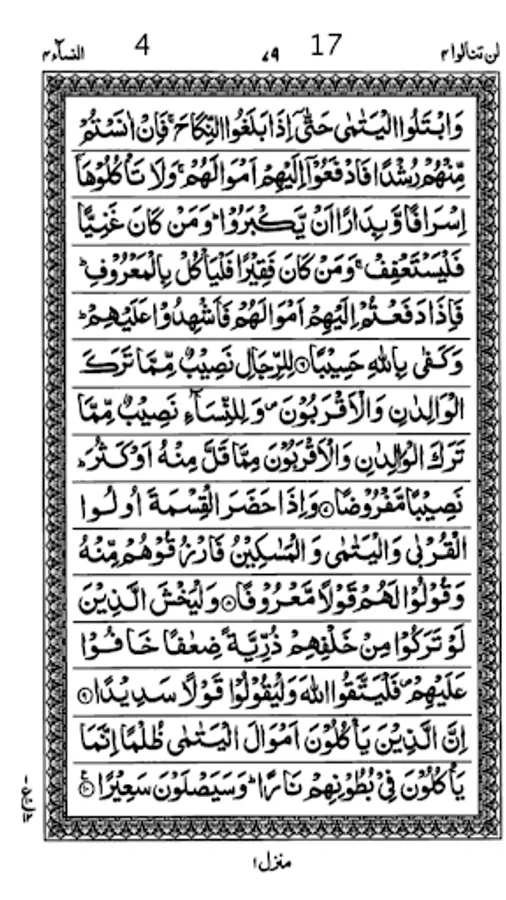 لن تنالوا ۴ ۷۹ 17 4 النساء ۴
وَابْتَلُوا الْيَتٰمٰى حَتّٰۤى اِذَا بَلَغُوا النِّكَاحَ ۚ فَاِنْ اٰنَسْتُمْ
مِّنْهُمْ رُشْدًا فَادْفَعُوْۤا اِلَيْهِمْ اَمْوَالَهُمْ ۚ وَلَا تَاْكُلُوْهَاۤ
اِسْرَافًا وَّبِدَارًا اَنْ يَّكْبَرُوْا ؕ وَمَنْ كَانَ غَنِيًّا
فَلْيَسْتَعْفِفْ ۚ وَمَنْ كَانَ فَقِيْرًا فَلْيَاْكُلْ بِالْمَعْرُوْفِ ؕ
فَاِذَا دَفَعْتُمْ اِلَيْهِمْ اَمْوَالَهُمْ فَاَشْهِدُوْا عَلَيْهِمْ ؕ
وَكَفٰى بِاللّٰهِ حَسِيْبًا ۶ لِلرِّجَالِ نَصِيْبٌ مِّمَّا تَرَكَ
الْوَالِدٰنِ وَالْاَقْرَبُوْنَ ۪ وَلِلنِّسَآءِ نَصِيْبٌ مِّمَّا
تَرَكَ الْوَالِدٰنِ وَالْاَقْرَبُوْنَ مِمَّا قَلَّ مِنْهُ اَوْ كَثُرَ ؕ
نَصِيْبًا مَّفْرُوْضًا ۷ وَاِذَا حَضَرَ الْقِسْمَةَ اُولُوا
الْقُرْبٰى وَالْيَتٰمٰى وَالْمَسٰكِيْنُ فَارْزُقُوْهُمْ مِّنْهُ
وَقُوْلُوْا لَهُمْ قَوْلًا مَّعْرُوْفًا ۸ وَلْيَخْشَ الَّذِيْنَ
لَوْ تَرَكُوْا مِنْ خَلْفِهِمْ ذُرِّيَّةً ضِعٰفًا خَافُوْا
عَلَيْهِمْ ۪ فَلْيَتَّقُوا اللّٰهَ وَلْيَقُوْلُوْا قَوْلًا سَدِيْدًا ۹
اِنَّ الَّذِيْنَ يَاْكُلُوْنَ اَمْوَالَ الْيَتٰمٰى ظُلْمًا اِنَّمَا
يَاْكُلُوْنَ فِيْ بُطُوْنِهِمْ نَارًا ؕ وَسَيَصْلَوْنَ سَعِيْرًا ۱۰
منزل ۱